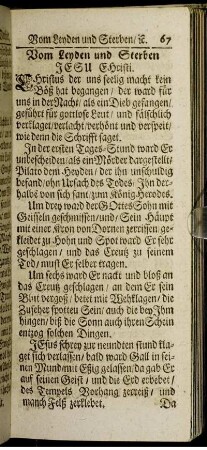 Vom Leyden und Sterben/ ꝛc. 67
Vom Leyden und Sterben
JESU CHristi.
CHristus der uns seelig macht kein
Böß hat begangen / der ward für
uns in der Nacht / als ein Dieb gefangen/
geführt für gottlose Leut / und fälschlich
verklaget / verlacht / verhönt und verspeit/
wie denn die Schrifft saget.
In der ersten Tages-Stund ward Er
unbescheiden / als ein Mörder dargestellt /
Pilato dem Heyden / der ihn unschuldig
befand / ohn Ursach des Todes / Ihn der-
halbe von sich sant / zum König Herodes.
Um drey ward der GOttes-Sohn mit
Geiseln geschmissen / und / Sein Häupt
mit einer Kron von Dornen zerrissen / ge-
kleidet zu Hohn und Spot ward Er sehr
geschlagen / und das Creutz zu seinem
Tod / must Er selber tragen.
Um sechs ward Er nackt und bloß an
das Creutz geschlagen / an dem Er sein
Blut vergoß / betet mit Wehklagen / die
Zuseher spotteu Sein / auch die bey Jhm
hingen / biß die Sonn auch ihren Schein
entzog solchen Dingen.
JEsus schrey zur neundten stund kla-
get sich verlassen / bald ward Gall in sei-
nen Mund mit Eßig gelassen / da gab Er
auf seinen Geist / und die Erd erbebet /
des Tempels Vorhang zerreiß / und
manch Felß zerklebet. Da